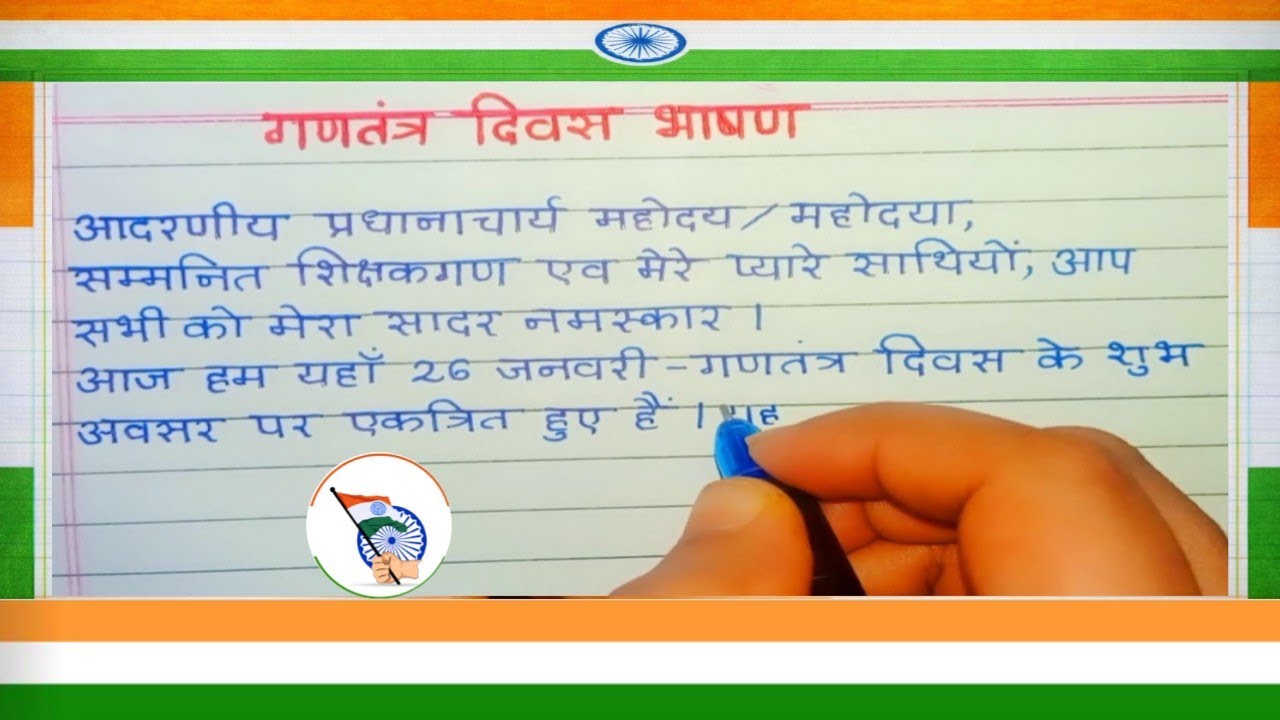 गणतंत्र दिवस भाषण
आदरणीय प्रधानाचार्य महोदय/महोदया,
सम्मनित शिक्षकगण एव मेरे प्यारे साथियों, आप
सभी को मेरा सादर नमस्कार ।
आज हम यहाँ 26 जनवरी - गणतंत्र दिवस के शुभ
अवसर पर एकत्रित हुए हैं ।